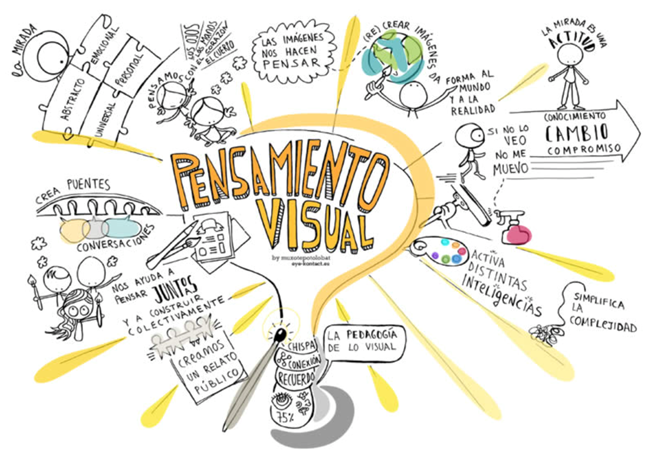 LA MIRADA
ABSTRACTO
EMOCIONAL
UNIVERSAL
PERSONAL
PENSAMOS CON
LOS OJOS
LAS MANOS
EL CORAZÓN
EL CUERPO
LAS IMÁGENES
NOS HACEN
PENSAR
(RE) CREAR IMÁGENES DA
FORMA AL
MUNDO
Y A LA
REALIDAD
LA MIRADA ES UNA
ACTITUD
CONOCIMIENTO
CAMBIO
COMPROMISO
SI NO LO
VEO
NO ME
MUEVO
PENSAMIENTO
VISUAL
eye-kontact.es
CREA PUENTES
CONVERSACIONES
NOS AYUDA A
PENSAR JUNTOS
Y A CONSTRUIR
COLECTIVAMENTE
CREAMOS
UN RELATO
PÚBLICO
ACTIVA
DISTINTAS
INTELIGENCIAS
SIMPLIFICA
LA
COMPLEJIDAD
CHISPA
CONEXIÓN
RECUERDO
75%
LA PEDAGOGÍA
DE LO VISUAL